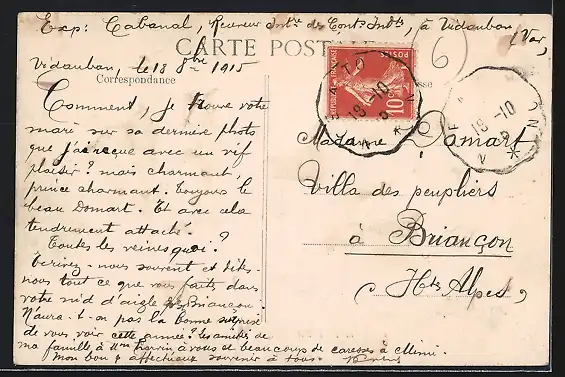 Exp: Cabanal, Receveur Int.re des Cont.s Ind.tes, à Vidauban
(Var)
CARTE POSTALE
Vidauban, le 18 8bre 1915
Correspondance
Comment, je trouve votre
mari sur sa dernière photo
que j'ai reçue avec un vif
plaisir? mais charmant!
prince charmant. Toujours le
beau Domart. Et avec cela
tendrement attaché.
Toutes les veines quoi?
Écrivez-nous souvent et dites-
nous tout ce que vous faites dans
votre nid d'aigle de Briançon.
N'aura-t-on pas la bonne surprise
de vous voir cette année? Les amitiés de
ma famille à Mme à vous et beaucoup de caresses à Mimi.
Mon bon & affectueux souvenir à tous.
RÉPUBLIQUE FRANÇAISE
POSTES
10c
18-10
18-10
6
Madame Domart
Villa des peupliers
à Briançon
(Htes Alpes)